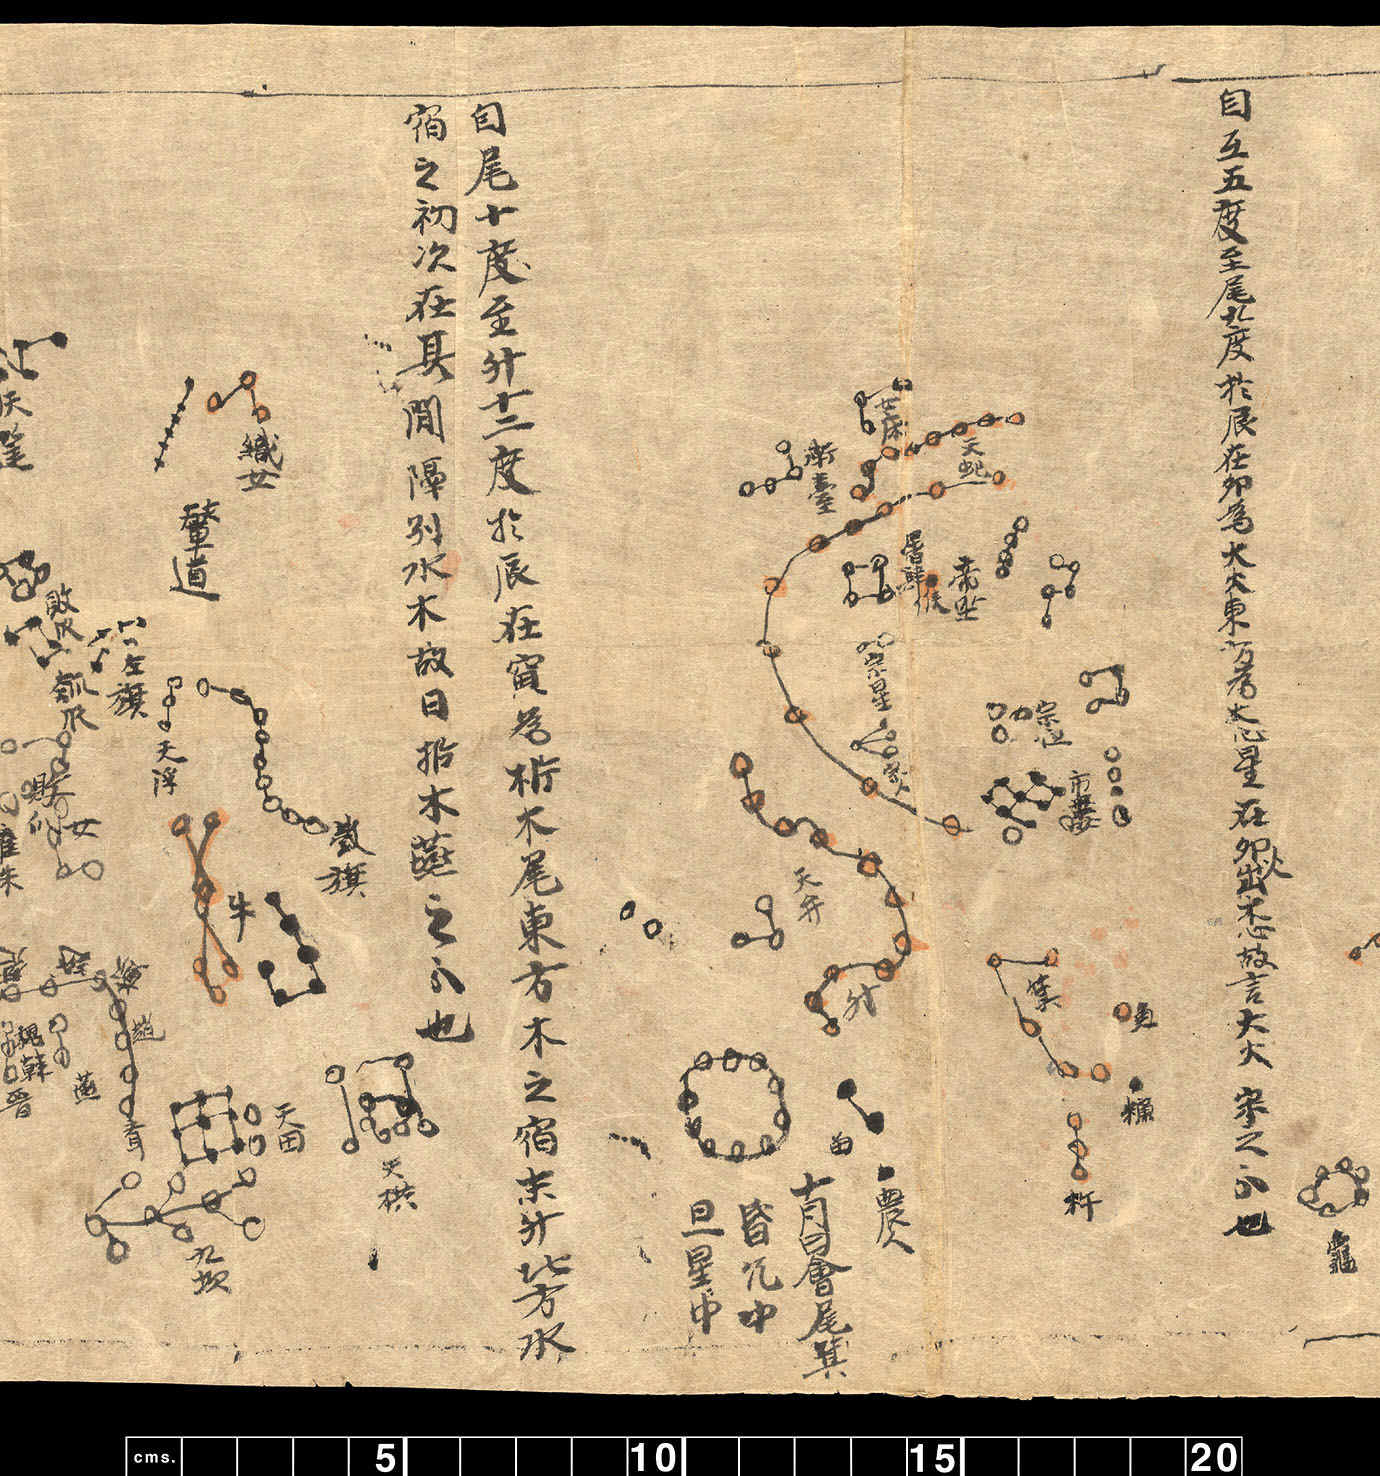 自互五度至尾九度於辰在卯為大火東方為木心星在卯火出木心故言大火宋之分也
龜
女床
天紀
漸臺
屠肆
帝坐
候
宗星
宗人
宗正
市樓
天弁
箕
魚
糠
杵
斗
農人
十月日會尾箕
昏危中
旦星中
自尾十度至斗十二度於辰在寅為析木尾東方木之宿末斗北方水
宿之初次在其間隔別水木故曰析木燕之分也
織女
輦道
左旗
天浮
敗瓜
瓠瓜
女
鼓旗
牛
天田
天棓
九坎
燕
韓
晉